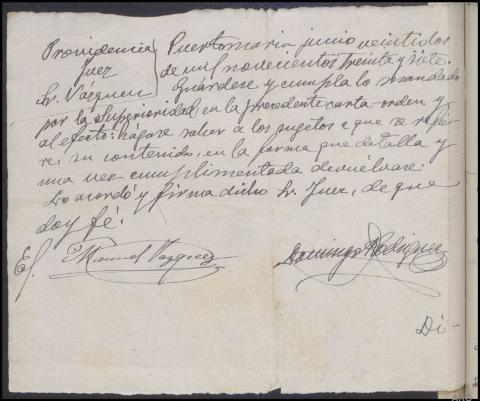 Providencia Puertomarin junio veintidos
Juez de mil novecientos treinta y siete.
Sr. Vázquez Guárdese y cumpla lo mandado
por la Superioridad en la precedente carta-orden y
al efecto: hágase saber a los sujetos a que se refie
re, su contenido, en la forma que detalla y
una vez cumplimentada devuélvase.
Lo acordó y firma dicho Sr. Juez, de que
doy fé.
Manuel Vazquez Domingo Rodriguez
Di-